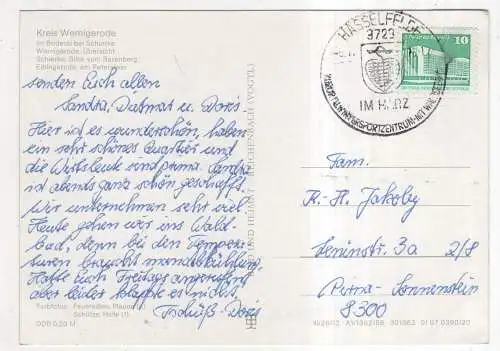 Kreis Wernigerode
Im Bodetal bei Schierke
Wernigerode, Übersicht
Schierke, Blick vom Barenberg
Elbingerode, am Petersholz
senden Euch allen
Sandra, Dietmar u. Doris
Hier ist es wunderschön, haben
ein sehr schönes Quartier und
die Wirtsleute sind prima. Sandra
ist abends ganz schön geschafft.
Wir unternehmen sehr viel
Heute gehen wir ins Wald-
bad, denn bei den Tempera-
turen braucht man Abkühlung.
Hatte Euch Freitags angerufen
aber leider klappte es nicht.
Tschüß Doris
Farbfotos:
DDR 0,20 M
UND HEIMAT REICHENBACH (VOGTL)
HASSELFELDE
3723
IM HARZ
10
Fam.
K.-H. Jakoby
Leninstr. 3a 2/8
Pirna-Sonnenstein
8300